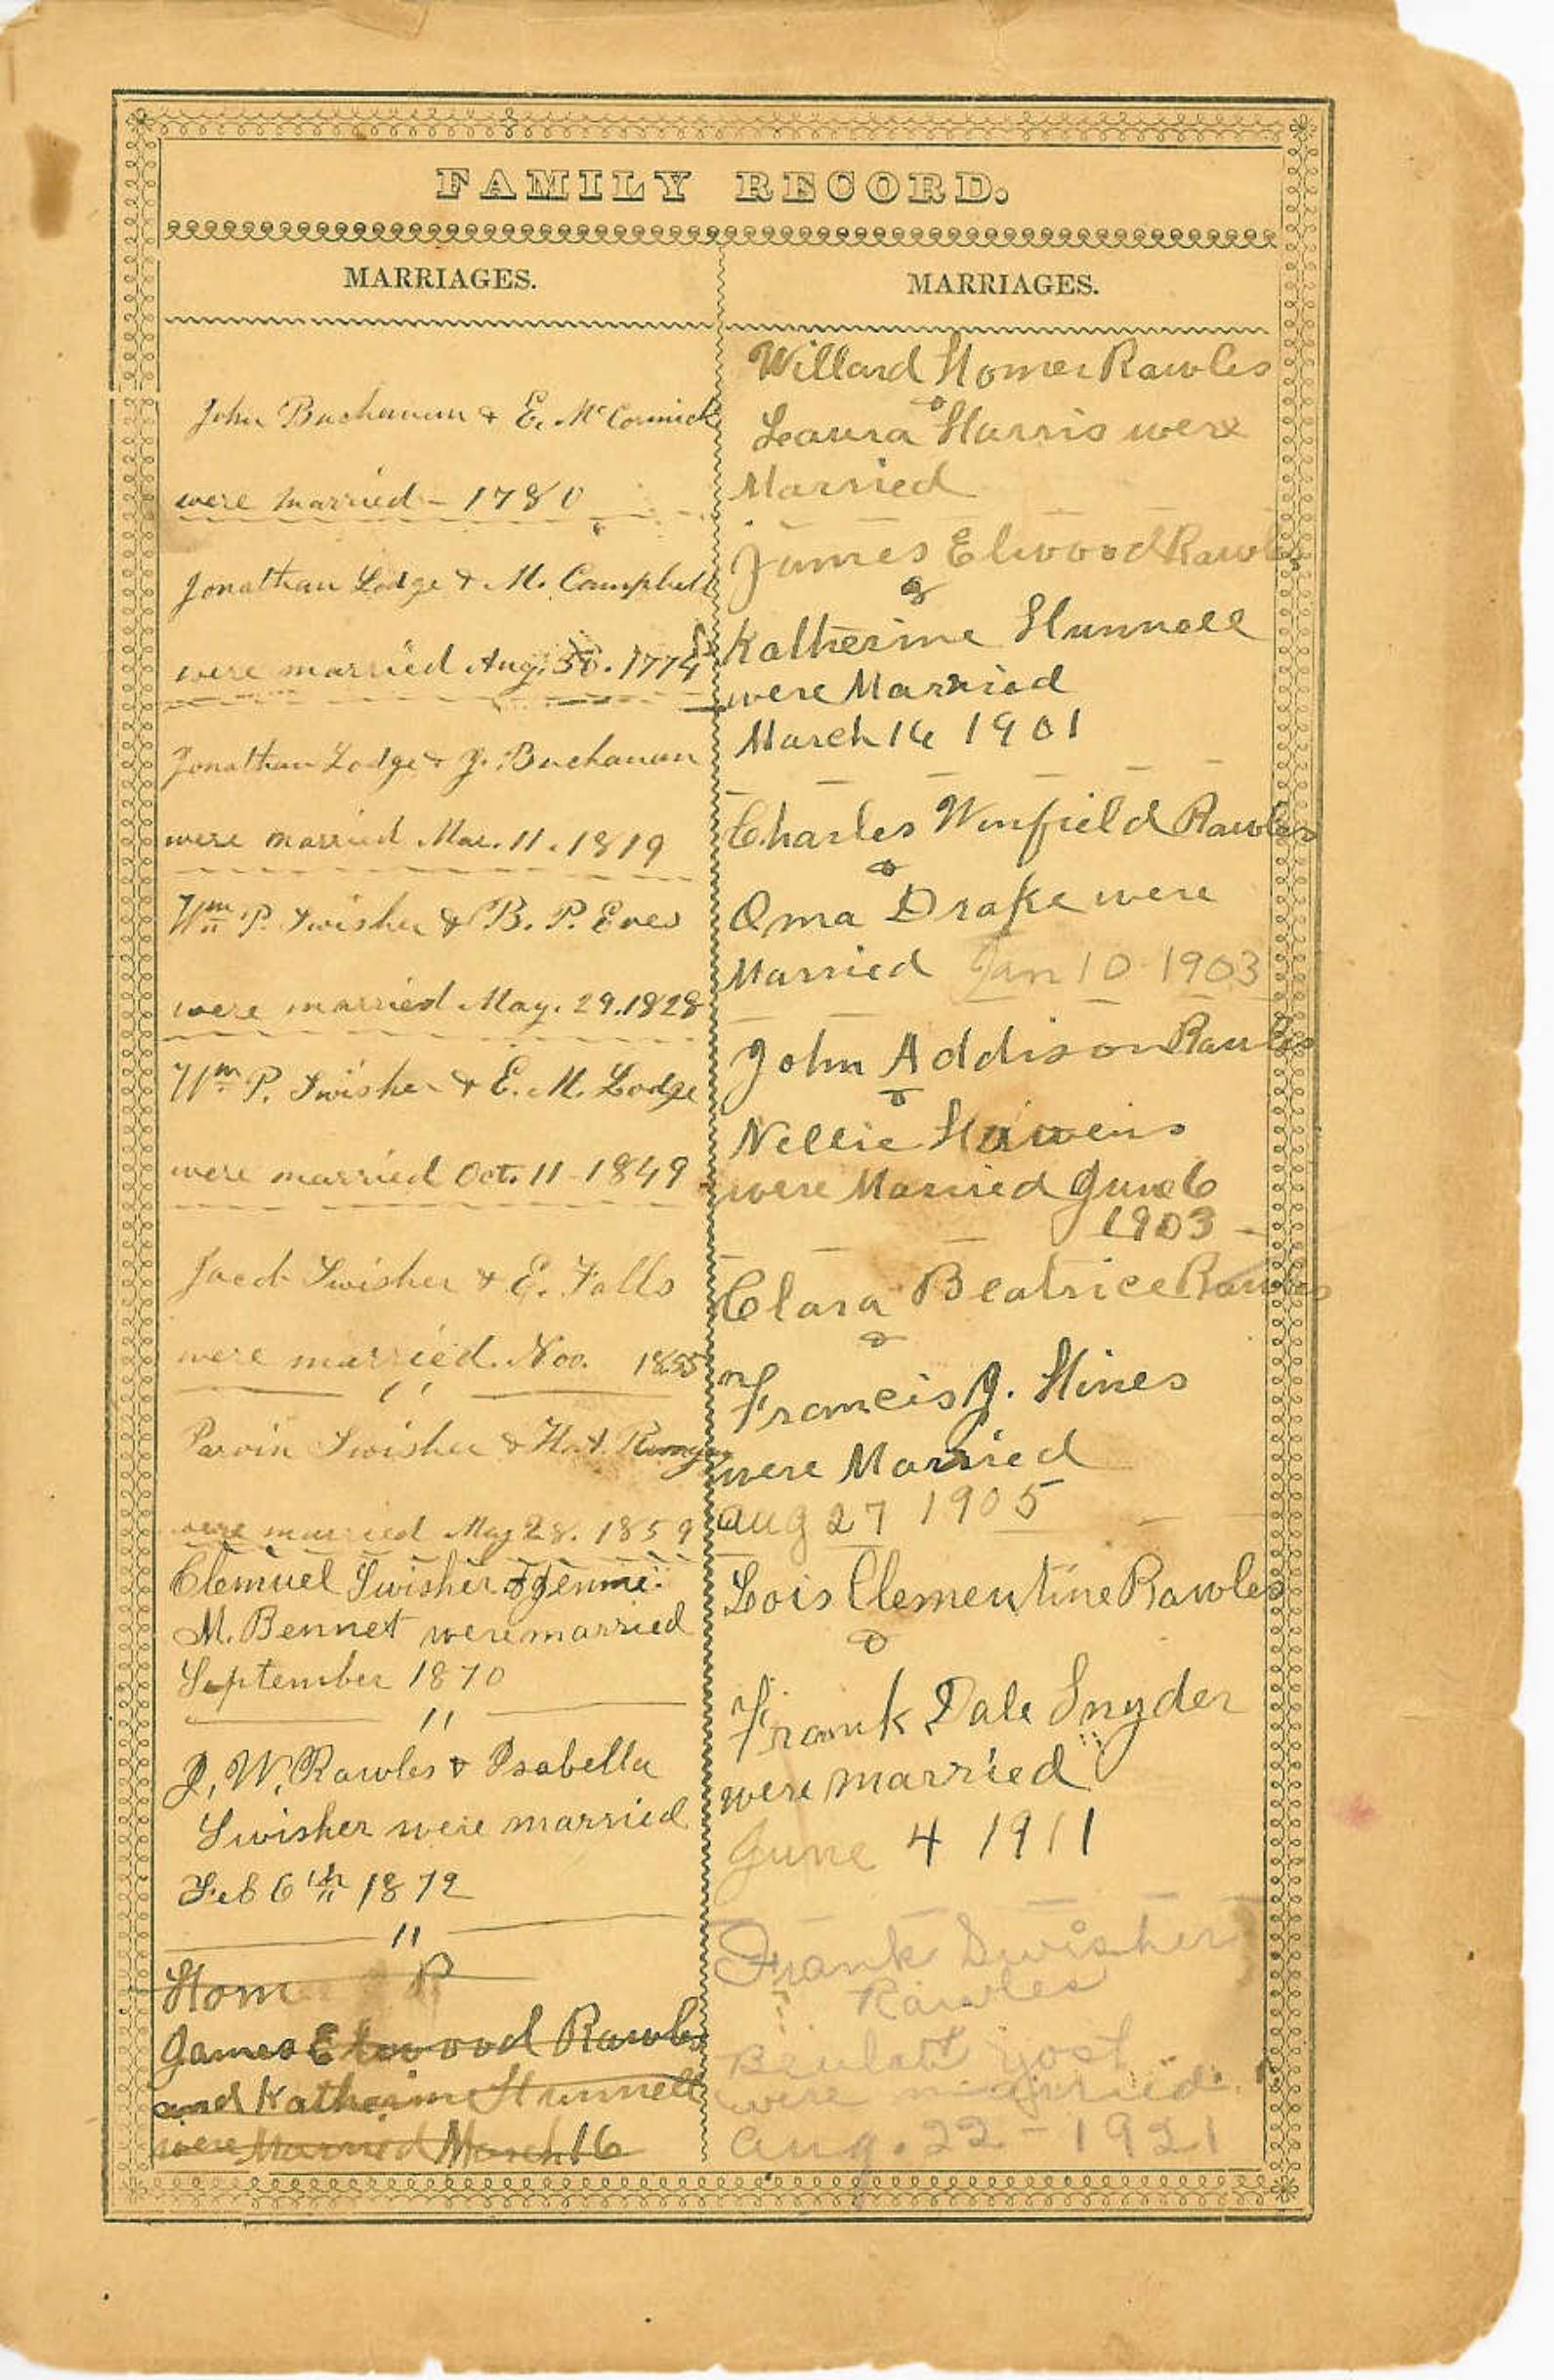 FAMILY RECORD.
MARRIAGES.
John Buchanan & E. McCormick
were married - 1780
Jonathan Lodge & M. Campbell
were married Aug. 1774
Jonathan Lodge & J. Buchanan
were married Mar. 11. 1819
Wm P. Swisher & B. P. Eves
were married May. 29. 1828
Wm P. Swisher & E. M. Lodge
were married Oct. 11 - 1849
Jacob Swisher & E. Falls
were married. Nov. 1855
Parvin Swisher & H. A. Runyan
were married May 28. 1859
Clemuel Swisher & Jennie
M. Bennet were married
September 1870
J. W. Rawles & Isabella
Swisher were married
Feb 6th 1872
Hom R
James Elwood Rawles
and Katherine Hunnell
were Married March 16
MARRIAGES.
Willard Homer Rawles
&
Laura Harris were
Married
James Elwood Rawles
&
Katherine Hunnell
were Married
March 16 1901
Charles Winfield Rawles
&
Oma Drake were
Married Jan 10 1903
John Addison Rawles
&
Nellie
were Married June 6
1903
Clara Beatrice Rawles
&
Francis J. Hines
were Married
Aug 27 1905
Lois Clementine Rawles
&
Frank Dale Snyder
were married
June 4 1911
Frank Swisher
Rawles
Beulah Yost
were married.
Aug. 22 - 1921